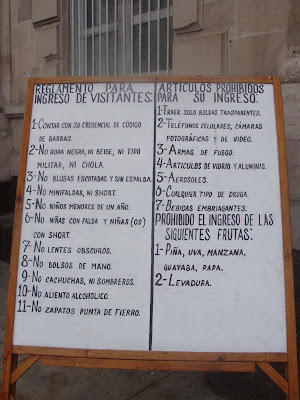 REGLAMENTO PARA
INGRESO DE VISITANTES:
1-CONTAR CON SU CREDENCIAL DE CÓDIGO
DE BARRAS.
2-NO ROPA NEGRA, NI BEIGE, NI TIPO
MILITAR, NI CHOLA.
3-NO BLUSAS ESCOTADAS Y SIN ESPALDA.
4-NO MINIFALDAS, NI SHORT.
5-NO NIÑOS MENORES DE UN AÑO.
6-NO NIÑAS CON FALDA Y NIÑAS(OS)
CON SHORT.
7-NO LENTES OBSCUROS.
8-NO BOLSOS DE MANO.
9-NO CACHUCHAS, NI SOMBREROS.
10-NO ALIENTO ALCOHOLICO.
11-NO ZAPATOS PUNTA DE FIERRO.
ARTÍCULOS PROHIBIDOS
PARA SU INGRESO:
1-TRAER SOLO BOLSAS TRASPARENTES.
2-TELÉFONOS CELULARES, CÁMARAS
FOTOGRÁFICAS Y DE VIDEO.
3-ARMAS DE FUEGO.
4-ARTICULOS DE VIDRIO Y ALUMINIO.
5-AEROSOLES.
6-CUALQUIER TIPO DE DROGA.
7-BEBIDAS EMBRIAGANTES.
PROHIBIDO EL INGRESO DE LAS
SIGUIENTES FRUTAS:
1-PIÑA, UVA, MANZANA,
GUAYABA, PAPA.
2-LEVADURA.